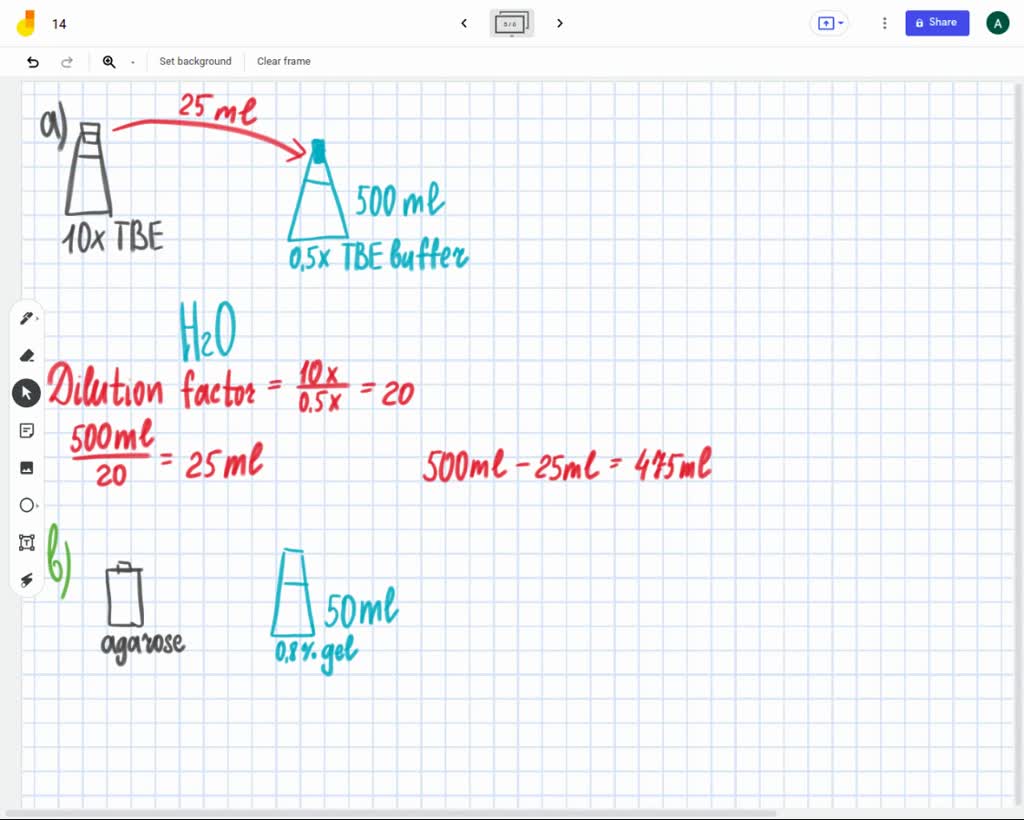 14
5 / 6
Share
A
Set background
Clear frame
a)
25 ml
500 ml
10x TBE
0,5x TBE buffer
H2O
Dilution factor = 10x / 0.5x = 20
500ml / 20 = 25 ml
500ml - 25ml = 475ml
b)
50ml
agarose
0,8% gel